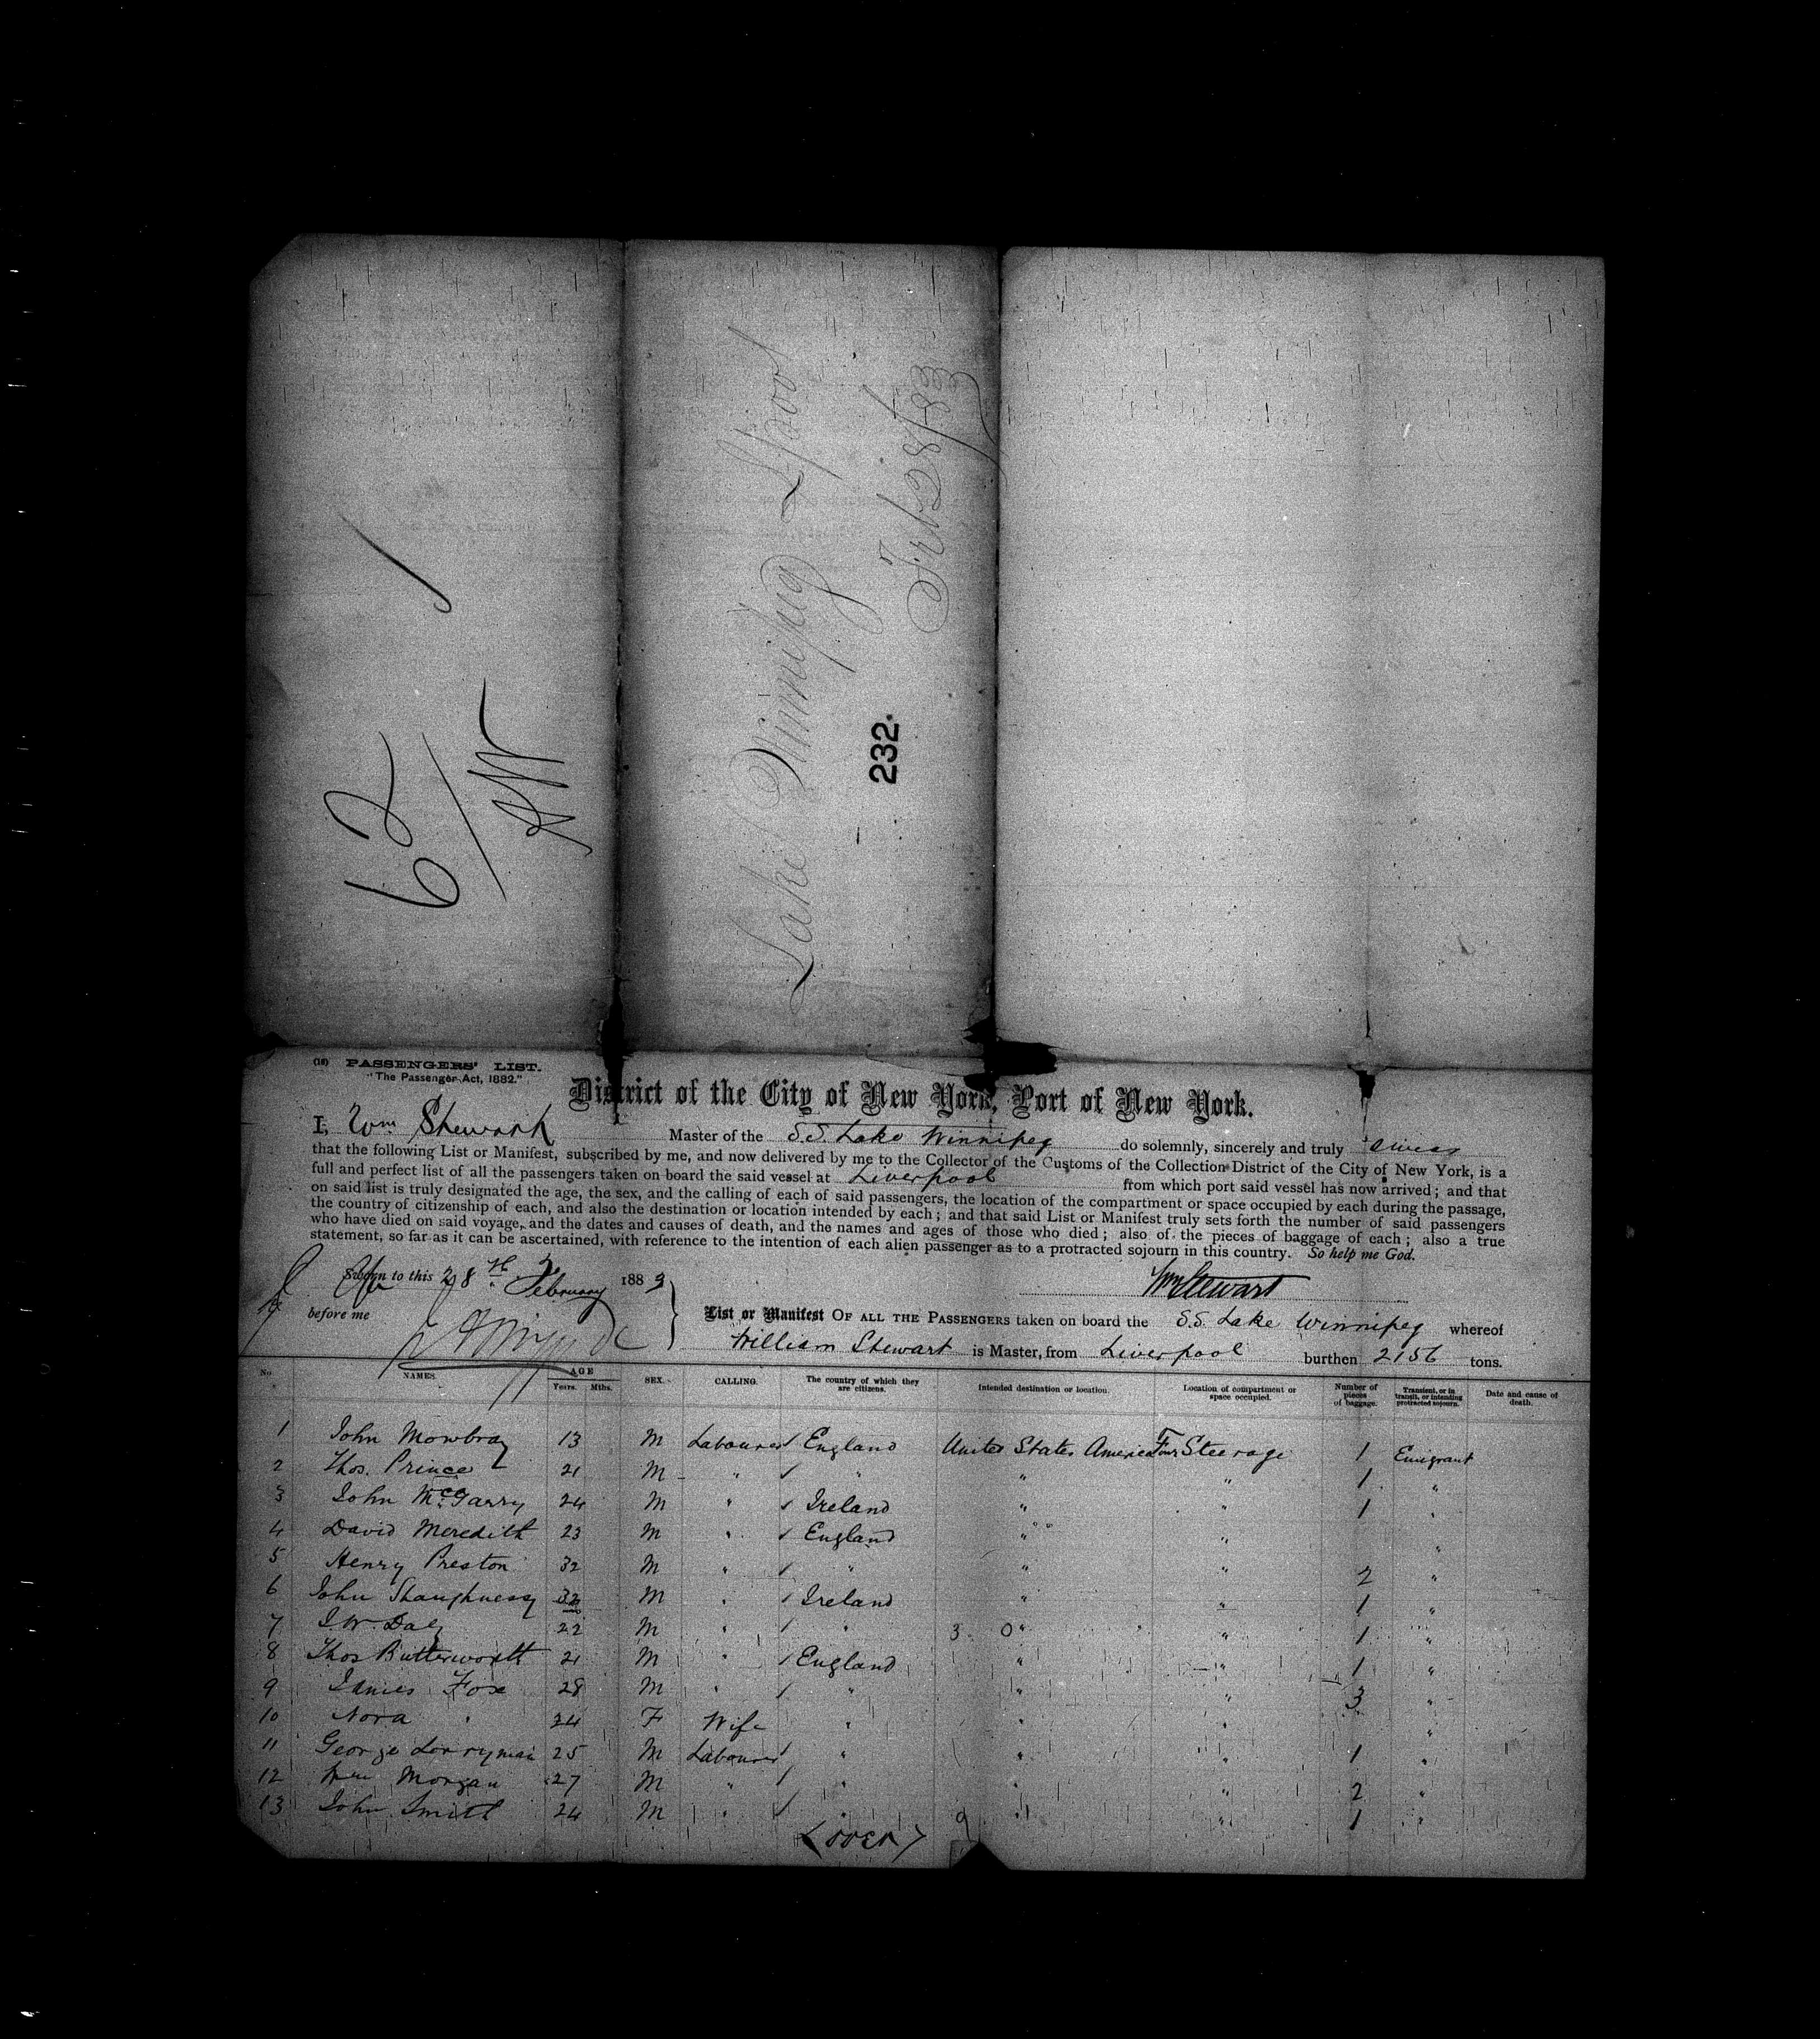 62
Lake Winnipeg L'pool
Feb 28/83
232.
(18) PASSENGERS' LIST.
"The Passenger Act, 1882."
District of the City of New York, Port of New York.
I, Wm Stewart Master of the S.S. Lake Winnipeg do solemnly, sincerely and truly swear
that the following List or Manifest, subscribed by me, and now delivered by me to the Collector of the Customs of the Collection District of the City of New York, is a
full and perfect list of all the passengers taken on board the said vessel at Liverpool from which port said vessel has now arrived; and that
on said list is truly designated the age, the sex, and the calling of each of said passengers, the location of the compartment or space occupied by each during the passage,
the country of citizenship of each, and also the destination or location intended by each; and that said List or Manifest truly sets forth the number of said passengers
who have died on said voyage, and the dates and causes of death, and the names and ages of those who died; also of the pieces of baggage of each; also a true
statement, so far as it can be ascertained, with reference to the intention of each alien passenger as to a protracted sojourn in this country. So help me God.
Sworn to this 28th February 1883
Wm Stewart
before me
List or Manifest OF ALL THE PASSENGERS taken on board the S.S. Lake Winnipeg whereof
William Stewart is Master, from Liverpool burthen 2156 tons.
No. NAMES. AGE Years. Mths. SEX. CALLING. The country of which they are citizens. Intended destination or location. Location of compartment or space occupied. Number of pieces of baggage. Transient, or in transit, or intending protracted sojourn. Date and cause of death.
1 John Mowbray 13 M Labourer England United States America Steerage 1 Emigrant
2 Thos. Prince 21 M " " " " 1 "
3 John McGarry 24 M " Ireland " " 1 "
4 David Meredith 23 M " England " " "
5 Henry Preston 32 M " " " " 2 "
6 John Shaughnessy 32 M " Ireland " " 1 "
7 J. W. Daly 22 M " " 3 0 " " 1 "
8 Thos Butterworth 21 M " England " " 1 "
9 James Fox 28 M " " " " 3 "
10 Nora " 24 F Wife " " " "
11 George Lorryman 25 M Labourer " " " 1 "
12 Wm Morgan 27 M " " " " 2 "
13 John Smith 24 M " " 9 " " 1 "
(over)